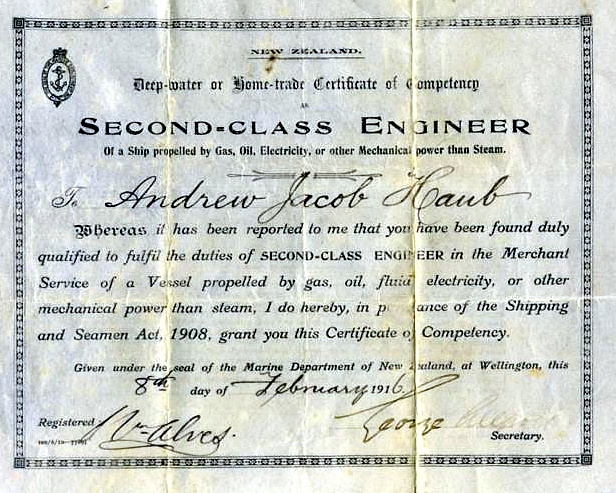 NEW ZEALAND.
Deep-water or Home-trade Certificate of Competency
AS
SECOND-CLASS ENGINEER
Of a Ship propelled by Gas, Oil, Electricity, or other Mechanical power than Steam.
To Andrew Jacob Haub
Whereas it has been reported to me that you have been found duly
qualified to fulfil the duties of SECOND-CLASS ENGINEER in the Merchant
Service of a Vessel propelled by gas, oil, fluid electricity, or other
mechanical power than steam, I do hereby, in p ance of the Shipping
and Seamen Act, 1908, grant you this Certificate of Competency.
Given under the seal of the Marine Department of New Zealand, at Wellington, this
8th day of February 1916.
Registered Wm Alves. George
Secretary.